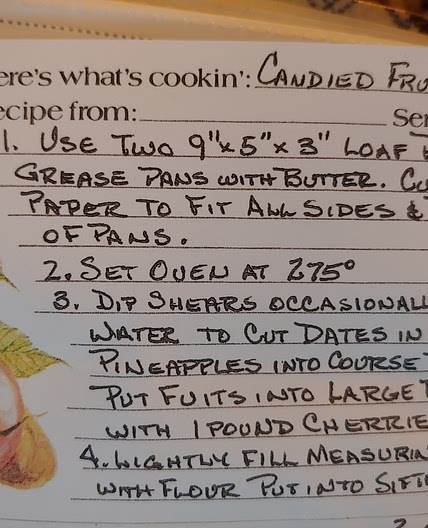 ere's what's cookin': CANDIED FRU
ecipe from: Ser
1. USE TWO 9"x5"x3" LOAF
GREASE PANS WITH BUTTER. CU
PAPER TO FIT ALL SIDES &
OF PANS.
2. SET OVEN AT 275°
3. DIP SHEARS OCCASIONALL
WATER TO CUT DATES IN
PINEAPPLES INTO COURSE
PUT FUITS INTO LARGE
WITH 1 POUND CHERRIE
4. LIGHTLY FILL MEASURIN
WITH FLOUR PUT INTO SIFT